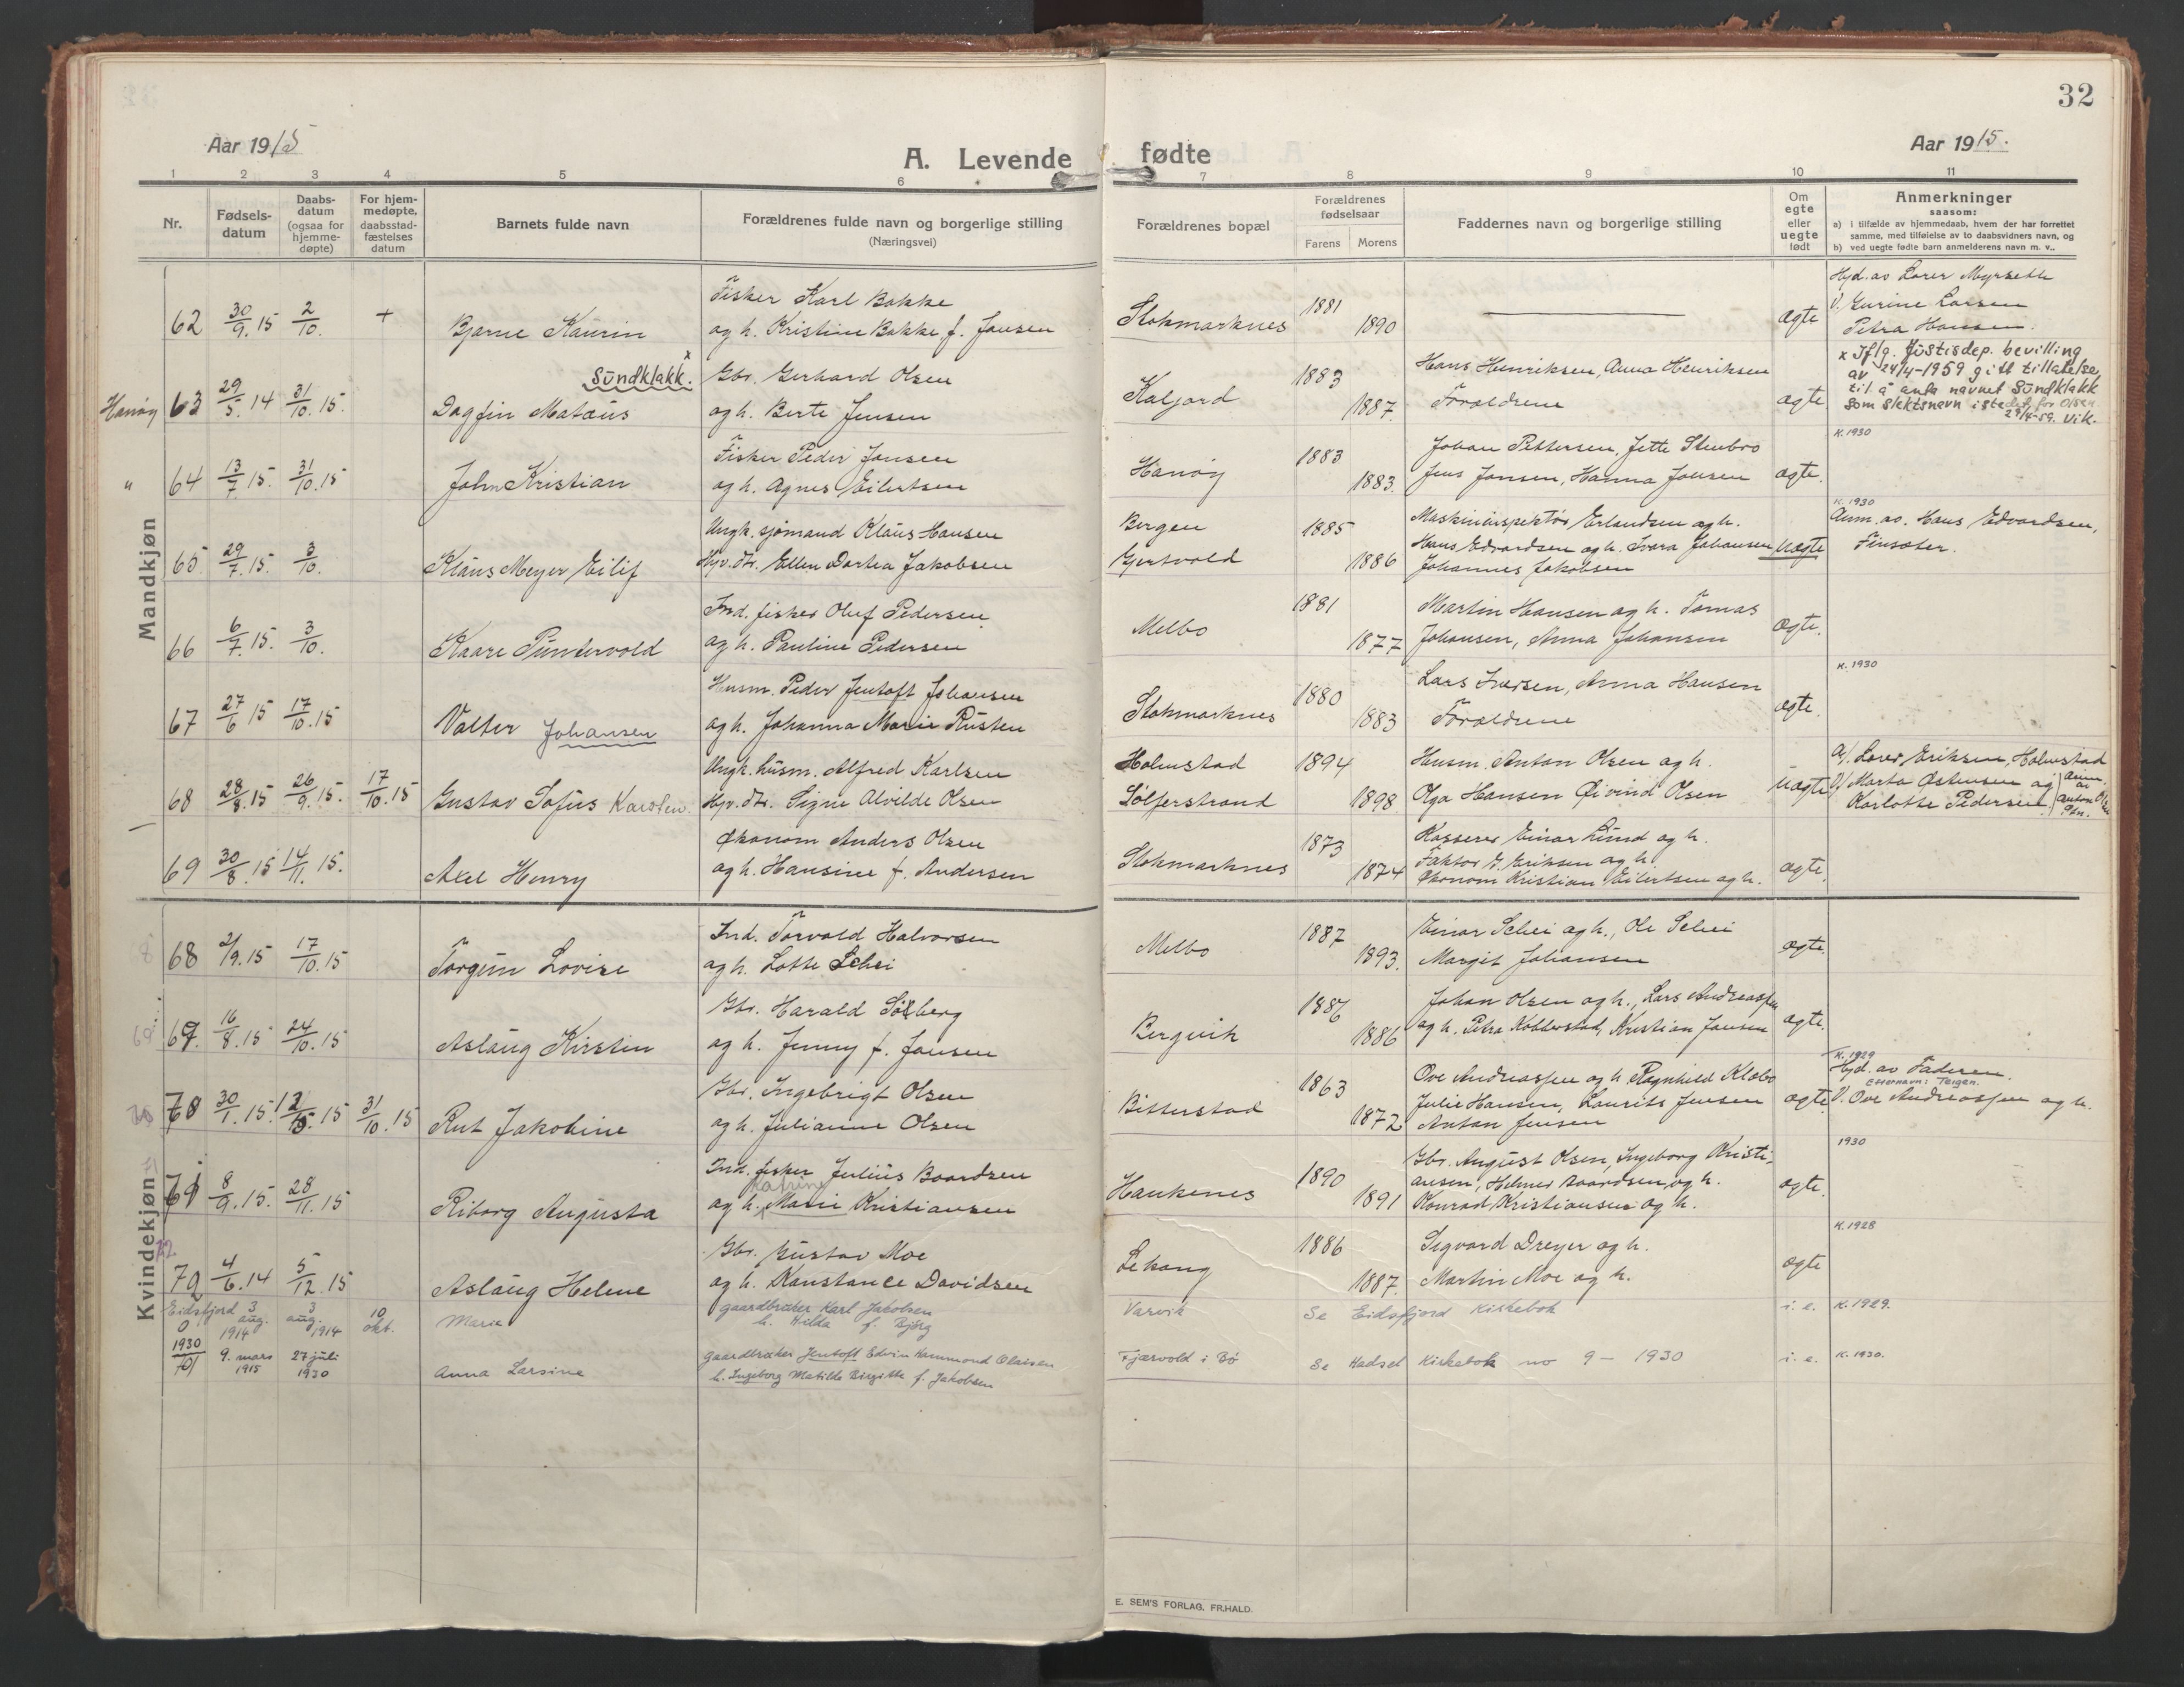 32
Aar 1915
A. Levende fødte
Aar 1915.
1 2 3 4 5 6 7 8 9 10 11
Nr.
Fødsels-
datum
Daabs-
datum
(ogsaa for
hjemme-
døpte)
For hjem-
medøpte,
daabsstad-
fæstelses
datum
Barnets fulde navn
Forældrenes fulde navn og borgerlige stilling
(Næringsvei)
Forældrenes bopæl
Forældrenes
fødselsaar
Farens Morens
Faddernes navn og borgerlige stilling
Om
egte
eller
uegte
født
Anmerkninger
saasom:
a) i tilfælde av hjemmedaab, hvem der har forrettet
samme, med tilføielse av to daabsvidners navn, og
b) ved uegte fødte barn anmelderens navn m. v..
Mandkjøn
62 30/9.15 2/10. + Bjarne Kaurin
Fisker Karl Bakke
og h. Kristine Bakke f. Jensen
Stokmarknes 1881 1890 ægte
Hjd. av Lærer Myrseth
V. Gurine Larsen
Petra Hansen.
Hanøy 63 29/5.14 31/10.15. Dagfin Matæus Sundklakk. x
Gbr. Gerhard Olsen
og h. Berte Jensen
Kaljord 1883 1887.
Hans Henriksen, Anna Henriksen
Forældrene
ægte
x Iflg. Justisdep. bevilling
av 24/4-1959 gitt tillatelse
til å anta navnet Sundklakk
som slektsnavn istedet for Olsen
29/4-59. Vik.
" 64 13/7 15. 31/10.15 John Kristian
Fisker Peder Jensen
og h. Agnes Eilertsen
Hanøy 1883 1883.
Johan Pettersen, Jette Stenbro
Jens Jensen, Hanna Jensen
ægte.
K. 1930
65 29/7.15. 3/10. Klaus Meyer Eilif
Ungk. sjømand Klaus Hansen
Hjv. dtr. Ellen Dortea Jakobsen
Bergen
Gjertvold
1885 1886
Maskininspektør Erlandsen og h.
Hans Edvardsen og h. Svara Johansen
Johannes Jakobsen
uægte
K. 1930
Anm. av. Hans Edvardsen,
Finsæter.
66 6/7.15. 3/10. Kaare Puntervold
Ind. fisker Oluf Pedersen
og h. Pauline Pedersen
Melbo 1881 1877
Martin Hansen og h. Tomas
Johansen, Anna Johansen
ægte.
67 27/6 15 17/10.15 Valter Johansen
Husm. Peder Jentoft Johansen
og h. Johanna Marie Rusten
Stokmarknes 1880 1883
Lars Iversen, Anna Hansen
Forældrene
ægte.
K. 1930
68 28/8.15 26/9.15. 17/10.15 Gustav Sofus Karsten
Ungk. husm. Alfred Karlsen
Hjv. dtr. Signe Alvilde Olsen
Holmstad
Sølferstrand
1894 1898
Husm. Anton Olsen og h.
Olga Hansen Øivind Olsen
uægte
a/ Lærer Eriksen, Holmstad
V/ Marta Østensen og
Karlotte Pedersen.
Anm.
av
Anton Olsen
69 30/8.15 14/11.15. Axel Henry
Økonom Anders Olsen
og h. Hansine f. Andersen
Stokmarknes 1873 1874
Kasserer Einar Lund og h.
Faktor G. Eriksen og h.
Økonom Kristian Eilertsen og h.
ægte.
Kvindekjøn
68 2/9.15 17/10.15 Torgun Lovise
Ind. Torvald Halvorsen
og h. Lotte Schei
Melbo 1887 1893.
Einar Schei og h., Ole Schei
Margit Johansen
ægte.
69 69. 16/8.15 24/10.15 Aslaug Kirsten
Gbr. Harald Solberg
og h. Jenny f. Jensen
Bergvik 1886 1886
Johan Olsen og h., Lars Andreassen
og h. Petra Kobberstad, Kristian Jensen
ægte.
70 30/1.15. 15 31/10.15 Rut Jakobine
Gbr. Ingebrigt Olsen
og h. Julianne Olsen
Bitterstad 1863 1872
Ove Andreassen og h. Ragnhild Klæbo
Julie Hansen, Laurits Jensen
Anton Jensen
ægte
K. 1929
Hjd. av Faderen.
Etternavn: Teigen.
V. Ove Andreassen og h.
71 8/9.15. 28/11.15 Riborg Augusta
Ind. fisker Julius Baardsen
Katrine
og h. Marie Kristiansen
Haukenes 1890 1891
Gbr. August Olsen, Ingeborg Kristi-
ansen, Helmer Baardsen og h.
Konrad Kristiansen og h.
ægte.
1930
72 72 4/6.14 5/12.15 Aslaug Helene
Gbr. Gustav Moe
og h. Konstance Davidsen
Lekang 1886 1887.
Sigvard Dreyer og h.
Martin Moe og h.
ægte
K. 1928
Eidsfjord 0 3 aug. 1914 3 aug. 1914 10 okt. Marie
gaardbruker Karl Jakobsen
h. Hilda f. Bjørg
Varvik Se Eidsfjord Kirkebok i. e. K. 1929.
1930 9. mars 1915 27 juli 1930 Anna Larsine
gaardbruker Jentoft Edvin Hammond Olaisen
h. Ingeborg Matilde Birgitte f. Jakobsen
Fjærvold i Bø Se Hadsel Kirkebok no 9 - 1930 i. e. K. 1930.
E. SEM'S FORLAG, FR.HALD.